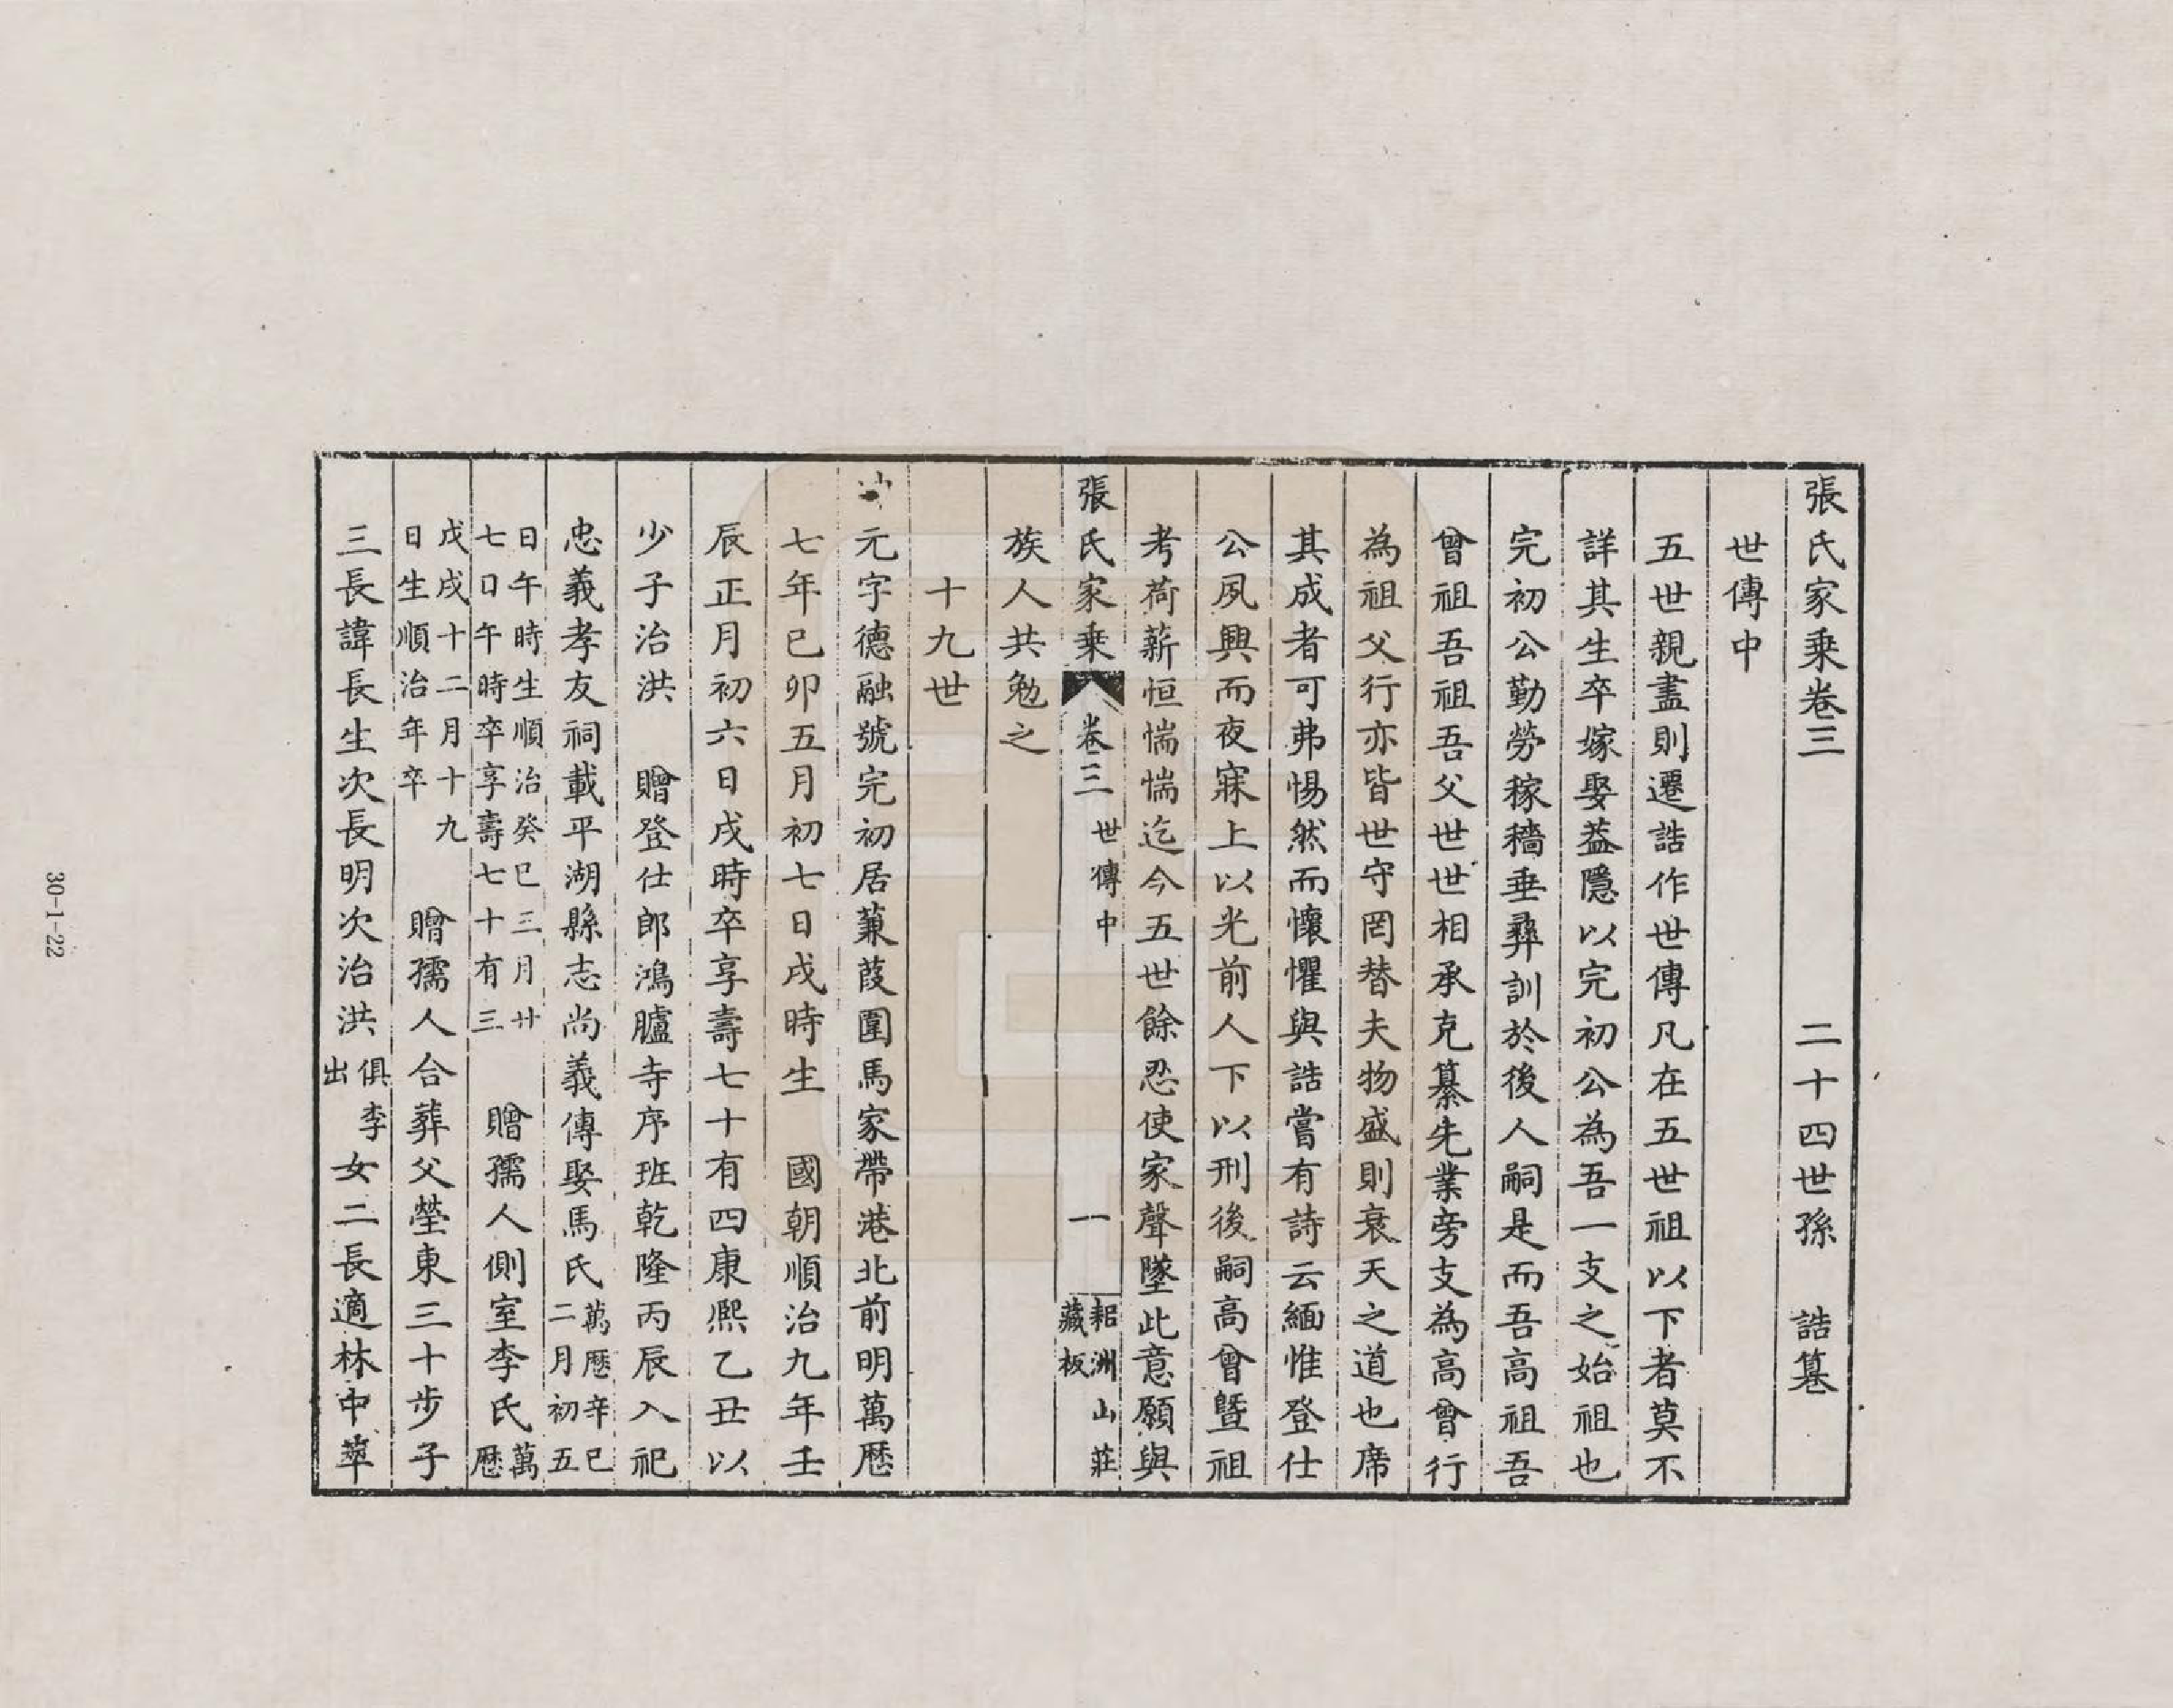 張氏家乗卷三　二十四世孫　誥䉵
世傳中
五世親盡則遷誥作世傳凡在五世祖以下者莫不
詳其生卒嫁娶葢隱以完初公為吾一支之始祖也
完初公勤勞稼穡垂彝訓於後人嗣是而吾高祖吾
曾祖吾祖吾父世世相承克纂先業旁支為高曾行
為祖父行亦皆世守罔替夫物盛則衰天之道也席
其成者可弗惕然而懷懼與誥嘗有詩云緬惟登仕
公夙興而夜寐上以光前人下以刑後嗣高曾曁祖
考荷薪恒惴惴迄今五世餘忍使家聲墜此意願與
張氏家乗　卷三　世傳中　一　耜洲山莊
藏板
族人共勉之
十九世
元字德融號完初居蒹葭圍馬家帶港北前明萬厯
七年己卯五月初七日戌時生　國朝順治九年壬
辰正月初六日戌時卒享壽七十有四康熙乙丑以
少子治洪　贈登仕郎鴻臚寺序班乾隆丙辰入祀
忠義孝友祠載平湖縣志尚義傳娶馬氏萬厯辛巳
二月初五
日午時生順治癸巳三月廿
七日午時卒享壽七十有三　贈孺人側室李氏萬
厯
戊戌十二月十九
日生順治年卒　贈孺人合葬父塋東三十步子
三長諱長生次長明次治洪俱李
出女二長適林中萃
30-1-22